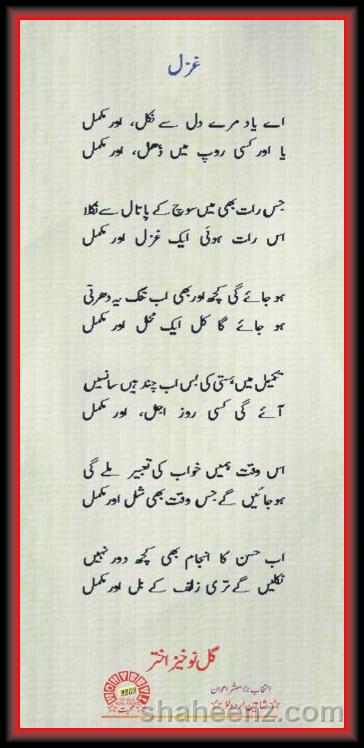 غزل
اے یاد مرے دل سے نکل، اور مکمل
یا اور کسی روپ میں ڈھل، اور مکمل
جس رات بھی میں سوچ کے پاتال سے نکلا
اس رات ہوئی ایک غزل اور مکمل
ہو جائے گی کچھ اور بھی اب تک یہ دھرتی
ہو جائے گا کل ایک محل اور مکمل
تکمیل میں ہستی کی بس اب چند ہیں سانسیں
آئے گی کسی روز اجل، اور مکمل
اس وقت ہمیں خواب کی تعبیر ملے گی
ہو جائیں گے جس وقت بھی شل اور مکمل
اب حسن کا انجام بھی کچھ دور نہیں
نکلیں گے تری زلف کے بل اور مکمل
گل نوخیز اختر
shaheenz.com